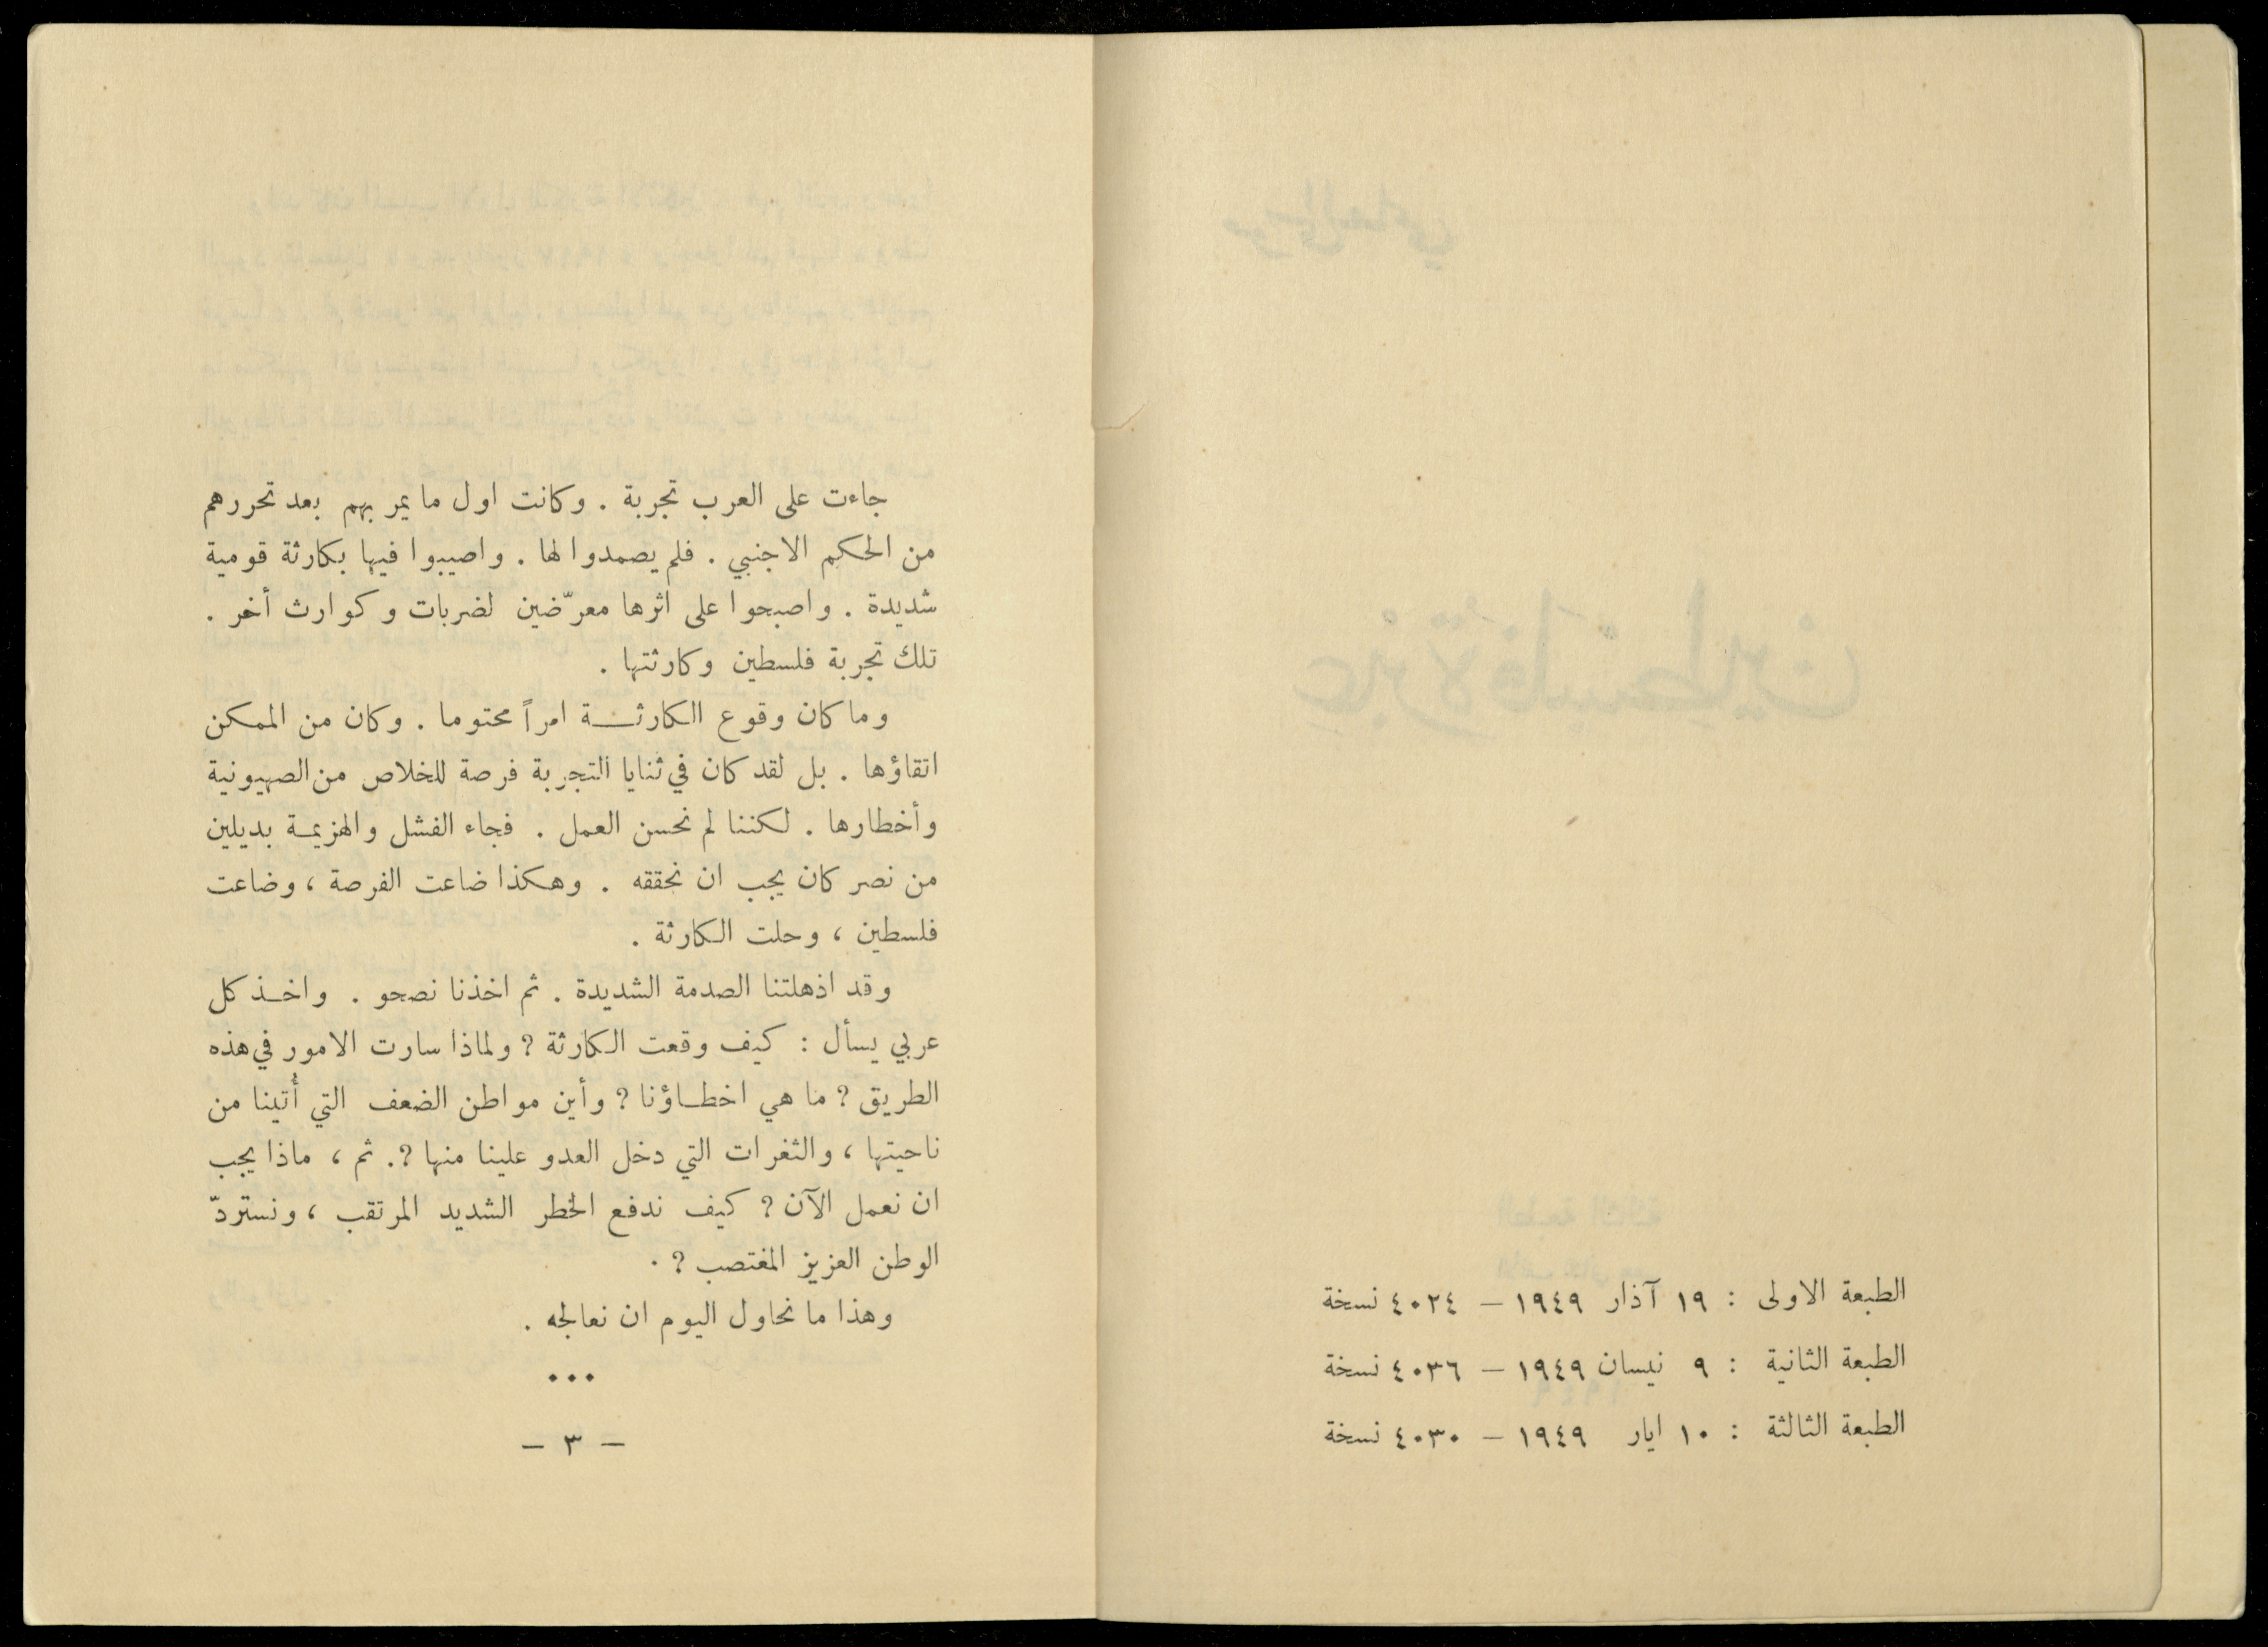 الطبعة الاولى : ١٩ آذار ١٩٤٩ — ٤٠٢٤ نسخة
الطبعة الثانية : ٩ نيسان ١٩٤٩ — ٤٠٣٦ نسخة
الطبعة الثالثة : ١٠ ايار ١٩٤٩ — ٤٠٣٠ نسخة
جاءت على العرب تجربة . وكانت اول ما يمر بهم بعد تحررهم
من الحكم الاجنبي . فلم يصمدوا لها . واصيبوا فيها بكارثة قومية
شديدة . واصبحوا على اثرها معرّضين لضربات وكوارث أخر .
تلك تجربة فلسطين وكارثتها .
وما كان وقوع الكارثـــة امراً محتوما . وكان من الممكن
اتقاؤها . بل لقد كان في ثنايا التجربة فرصة للخلاص من الصهيونية
وأخطارها . لكننا لم نحسن العمل . فجاء الفشل والهزيمـة بديلين
من نصر كان يجب ان نحققه . وهكذا ضاعت الفرصة ، وضاعت
فلسطين ، وحلت الكارثة .
وقد اذهلتنا الصدمة الشديدة . ثم اخذنا نصحو . واخـذ كل
عربي يسأل : كيف وقعت الكارثة ؟ ولماذا سارت الامور في هذه
الطريق ؟ ما هي اخطـاؤنا ؟ وأين مواطن الضعف التي أُتينا من
ناحيتها ، والثغرات التي دخل العدو علينا منها ؟. ثم ، ماذا يجب
ان نعمل الآن ؟ كيف ندفع الخطر الشديد المرتقب ، ونستردّ
الوطن العزيز المغتصب ؟ .
وهذا ما نحاول اليوم ان نعالجه .
•••
— ٣ —